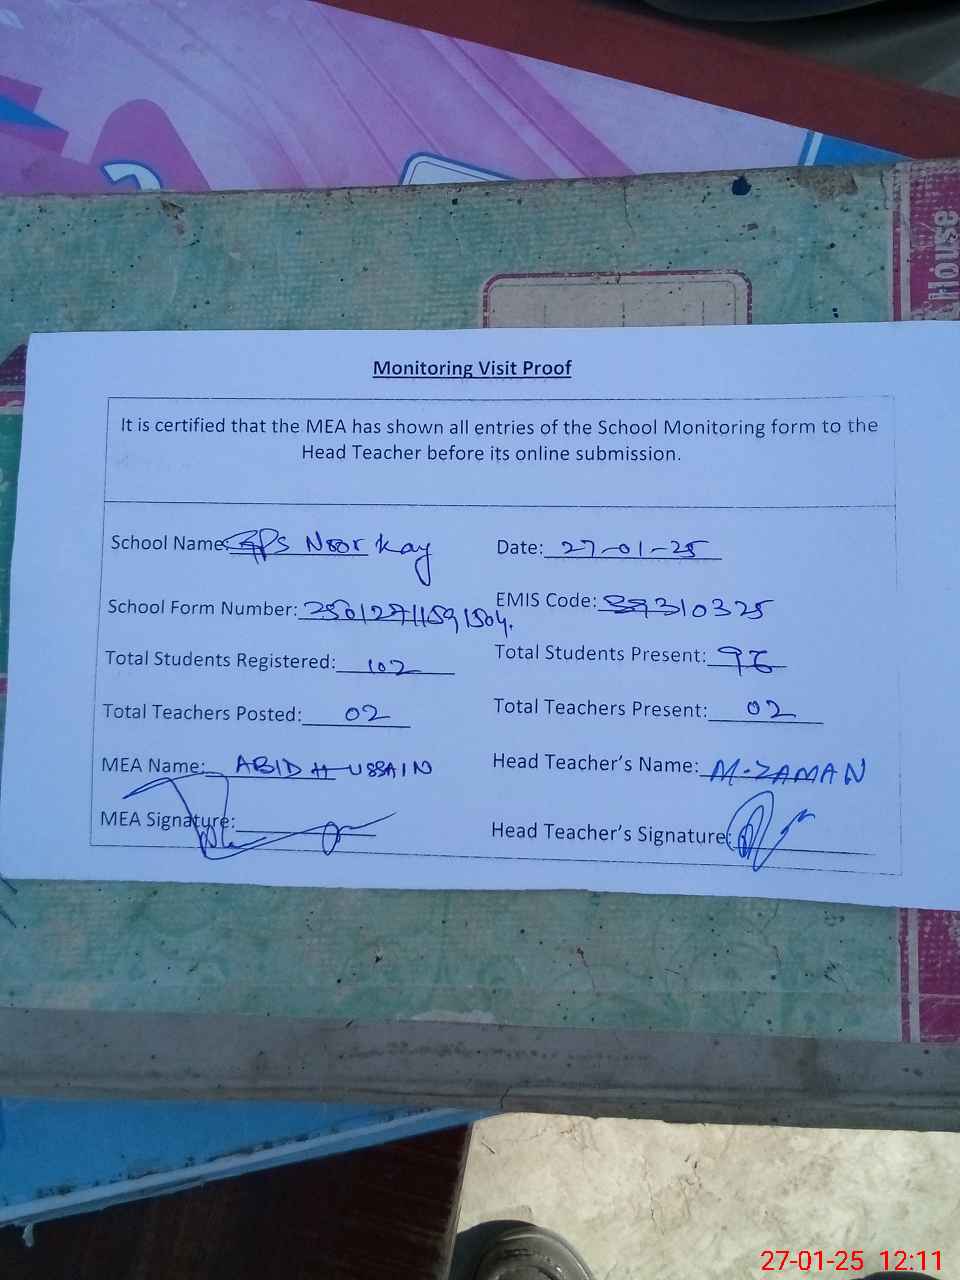 House
Monitoring Visit Proof
It is certified that the MEA has shown all entries of the School Monitoring form to the
Head Teacher before its online submission.
School Name: GPS Noor Kay
Date: 27-01-25
School Form Number: 25012711591504.
EMIS Code: 39310325
Total Students Registered: 102
Total Students Present: 96
Total Teachers Posted: 02
Total Teachers Present: 02
MEA Name: ABID HUSSAIN
Head Teacher's Name: M. ZAMAN
MEA Signature:
Head Teacher's Signature:
27-01-25 12:11